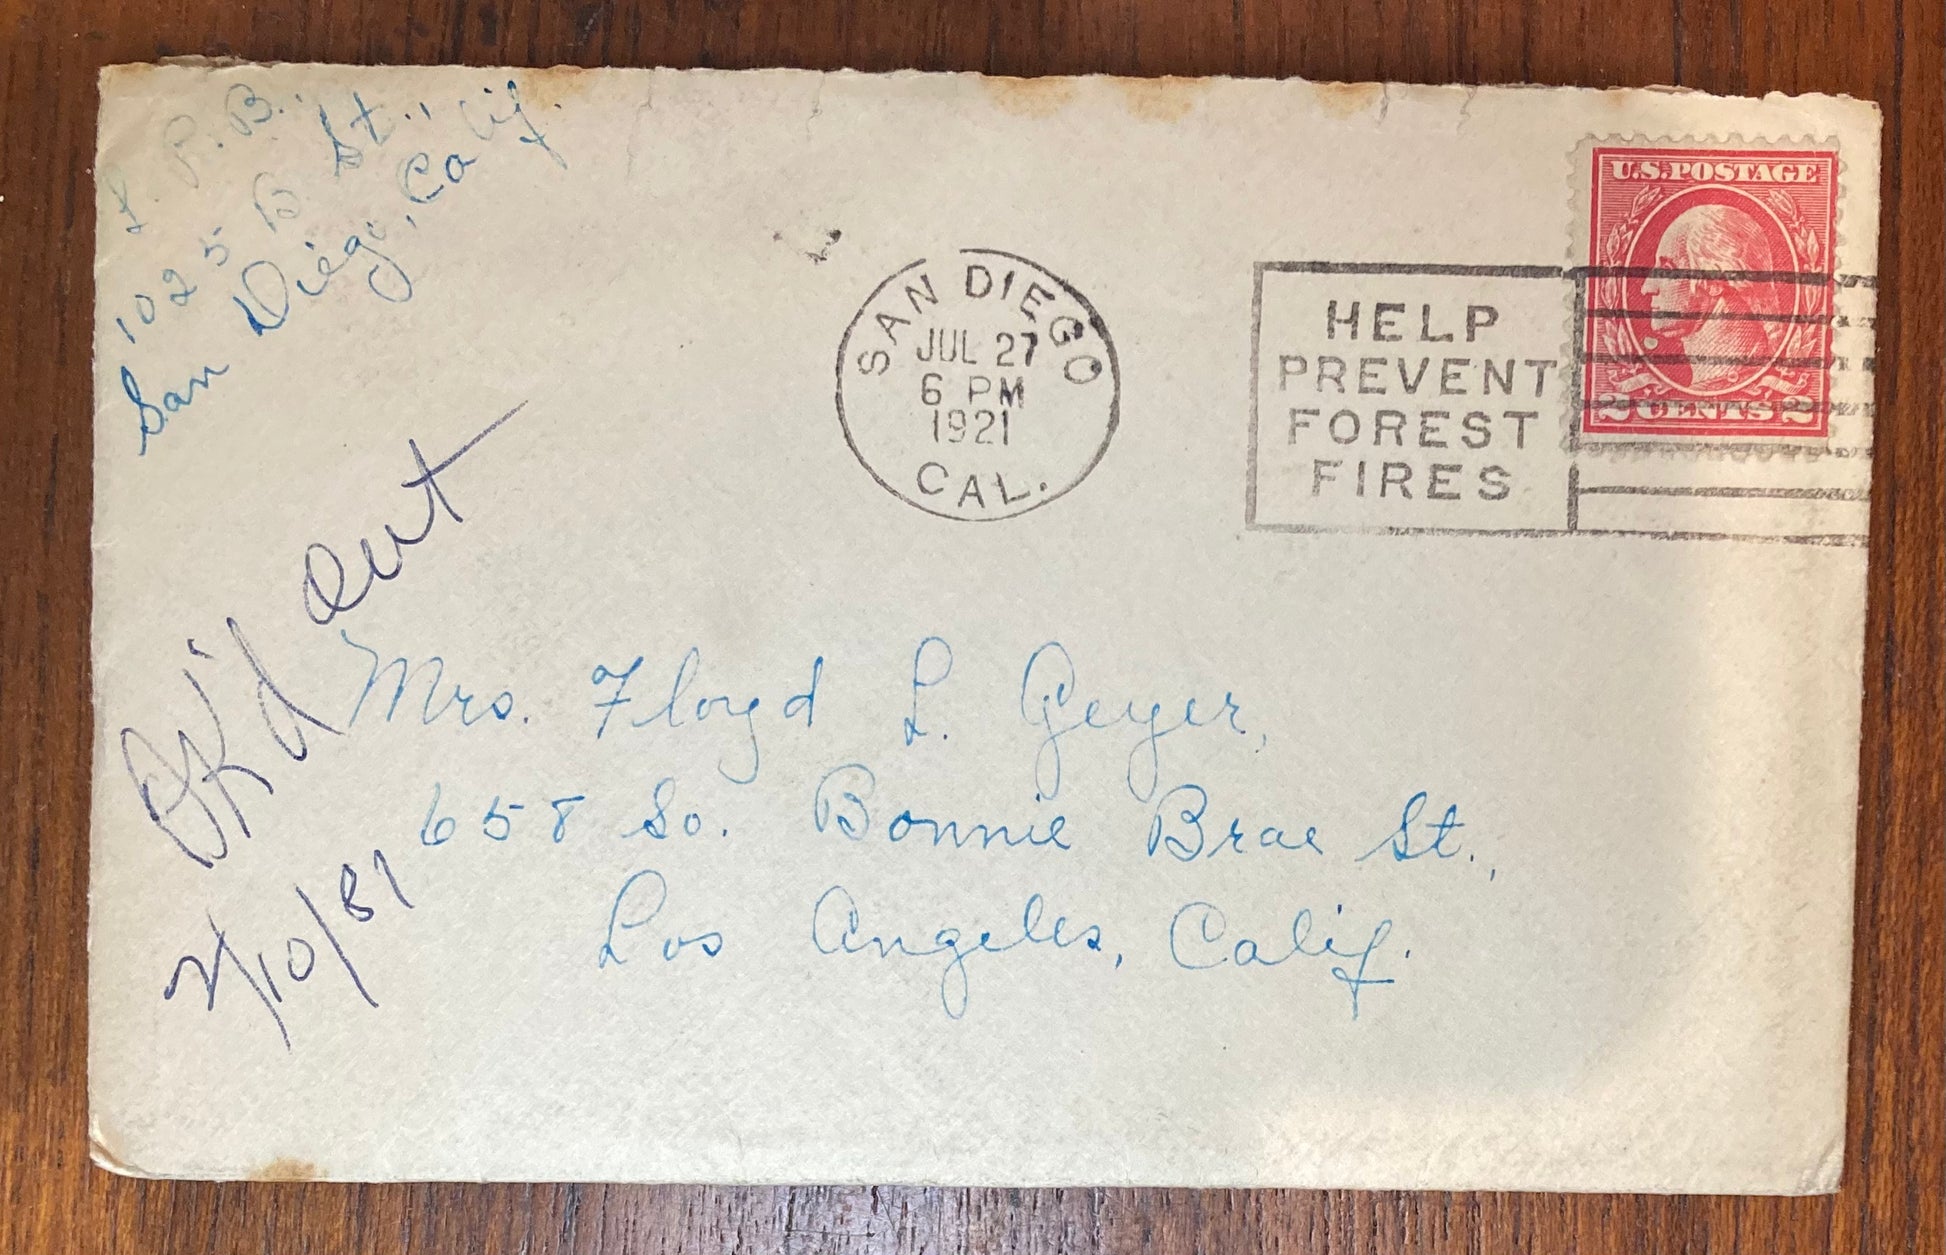 L. P. B.,
1025 B St.,
San Diego, Calif.
SAN DIEGO
JUL 27
6 PM
1921
CAL.
HELP
PREVENT
FOREST
FIRES
U.S. POSTAGE
2 CENTS 2
OK'd out
2/10/81
Mrs. Floyd L. Geyer,
658 So. Bonnie Brae St.,
Los Angeles, Calif.